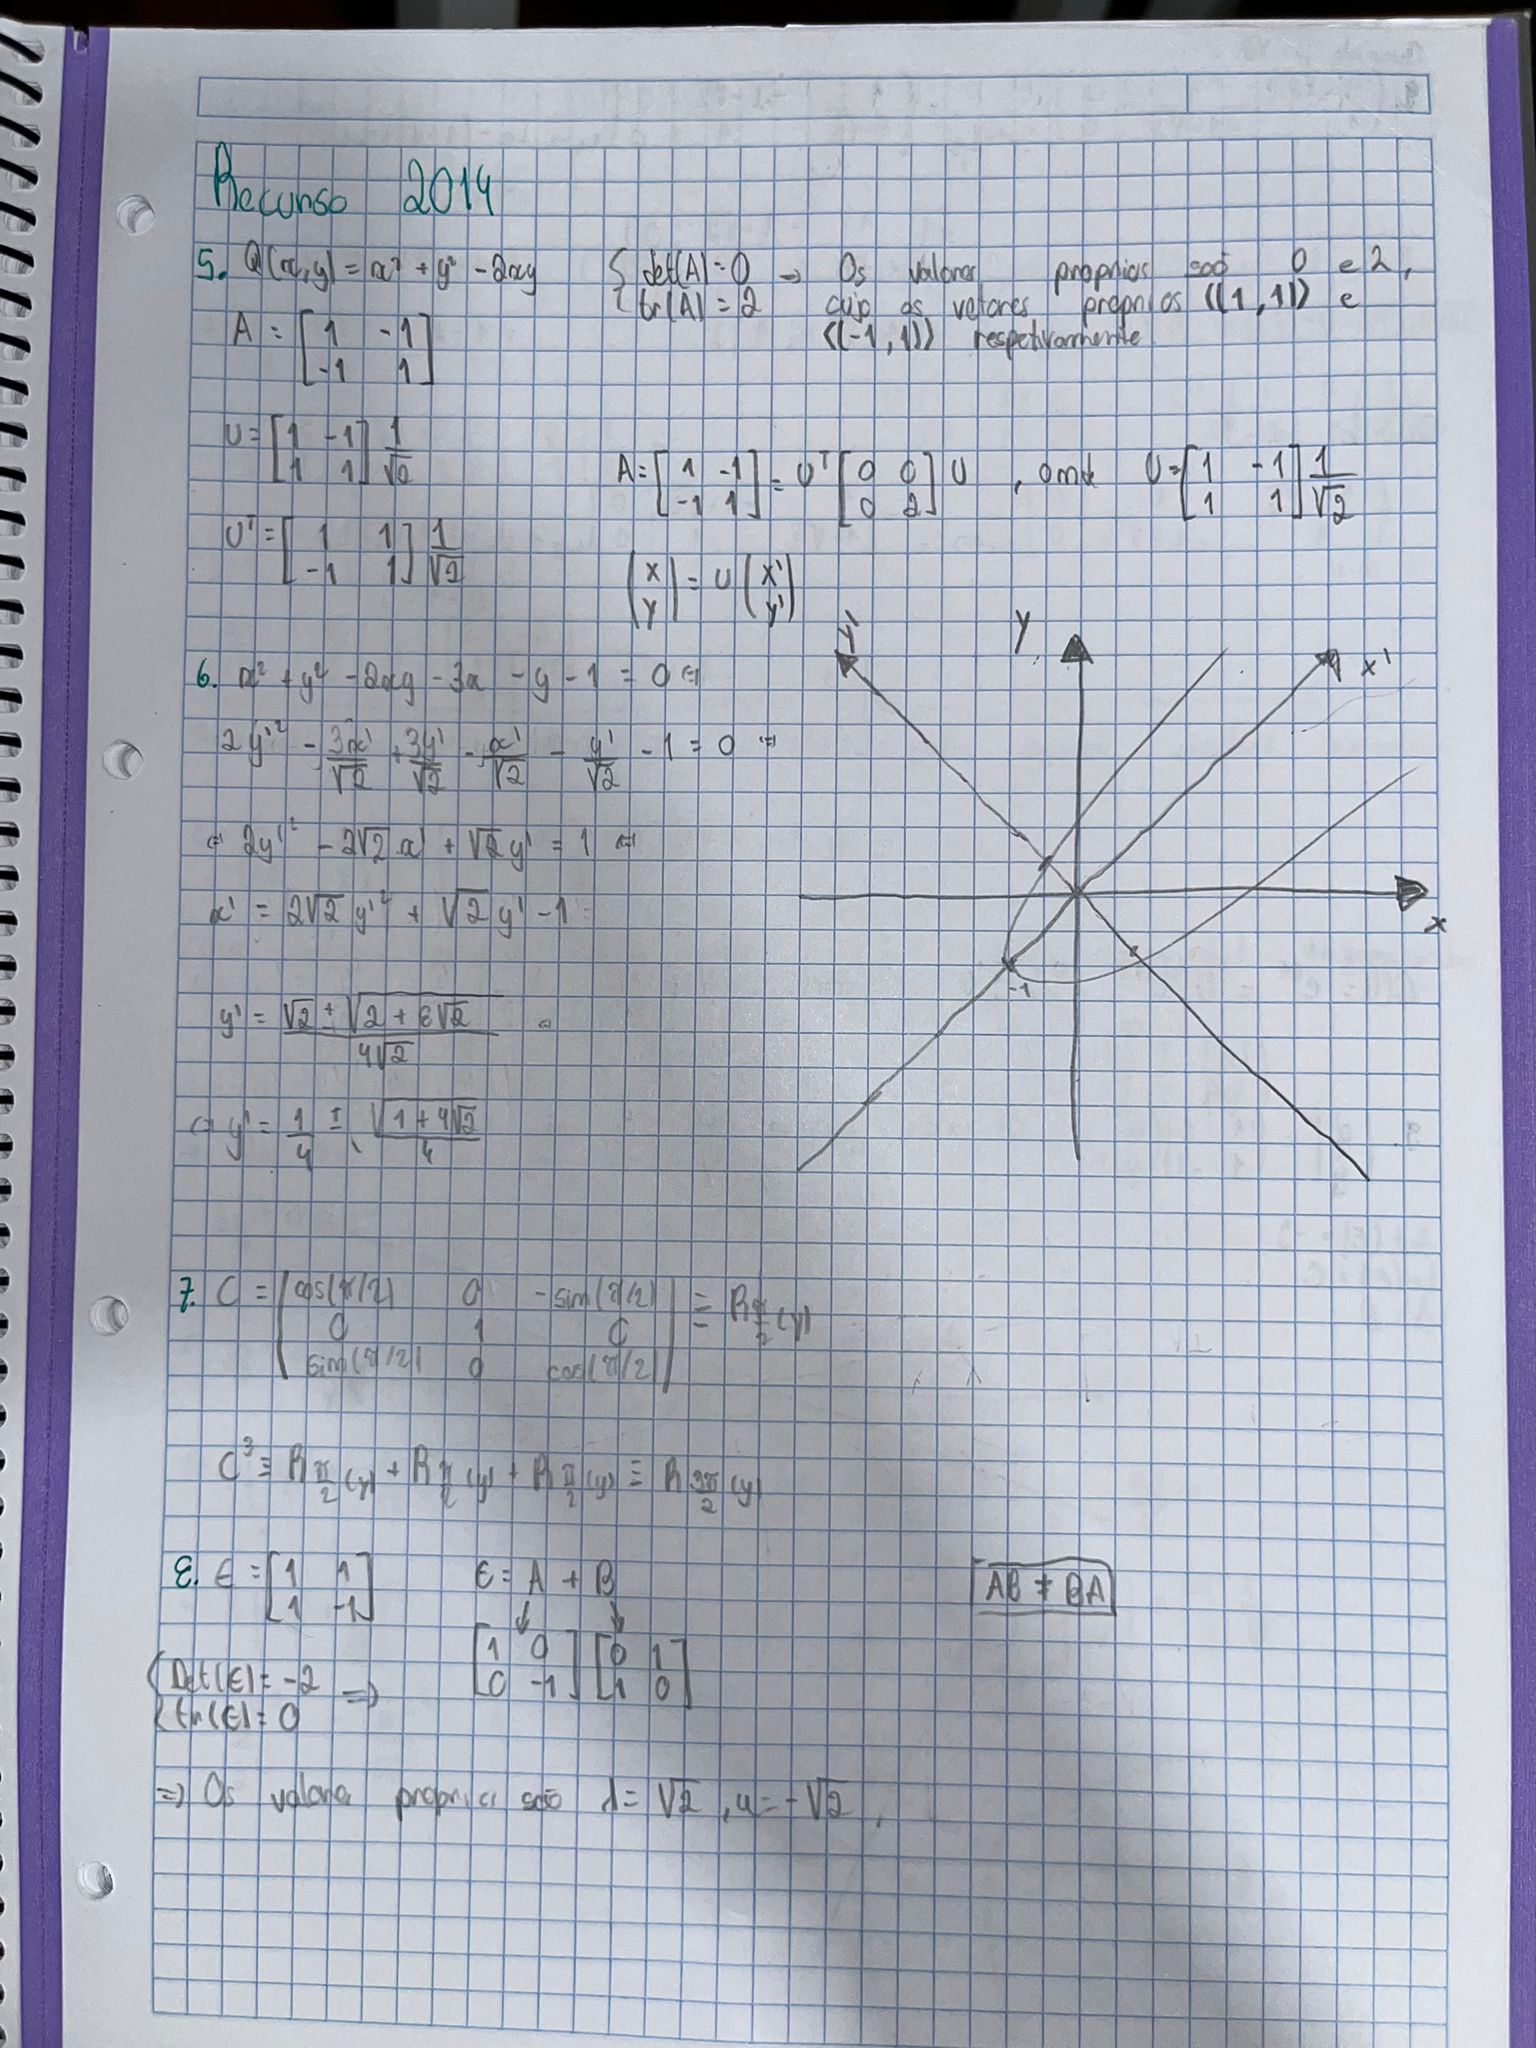 Recurso 2014
5. Q(x,y) = x² + y² - 2xy
{ det(A) = 0
tr(A) = 2
→ Os valores proprios são 0 e 2,
cujo os vetores próprios ⟨(1,1)⟩ e
⟨(-1,1)⟩ respetivamente
A = [1 -1
-1 1]
U = [1 -1
1 1] 1/√2
A = [1 -1
-1 1] = Uᵀ [0 0
0 2] U , onde U = [1 -1
1 1] 1/√2
Uᵀ = [1 1
-1 1] 1/√2
(x
y) = U (x'
y')
6. x² + y² - 2xy - 3x - y - 1 = 0 ⇔
2y'² - 3x'/√2 + 3y'/√2 - x'/√2 - y'/√2 - 1 = 0 ⇔
⇔ 2y'² - 2√2 x' + √2 y' = 1 ⇔
x' = 2√2 y'² + √2 y' - 1 =
y' = (√2 ± √(2 + 8√2)) / 4√2
⇔ y' = 1/4 ± √(1 + 4√2) / 4
y'
y
x'
x
-1
7. C = [cos(π/2) 0 -sin(π/2)
0 1 0
sin(π/2) 0 cos(π/2)] = R π/2 (y)
C³ ≡ R π/2 (y) + R π/2 (y) + R π/2 (y) ≡ R 3π/2 (y)
8. E = [1 1
1 -1]
E = A + B
[1 0
0 -1] [0 1
1 0]
AB ≠ BA
{ Det(E) = -2
tr(E) = 0
⇒
⇒ Os valores proprios são λ = √2 , u = -√2 ,